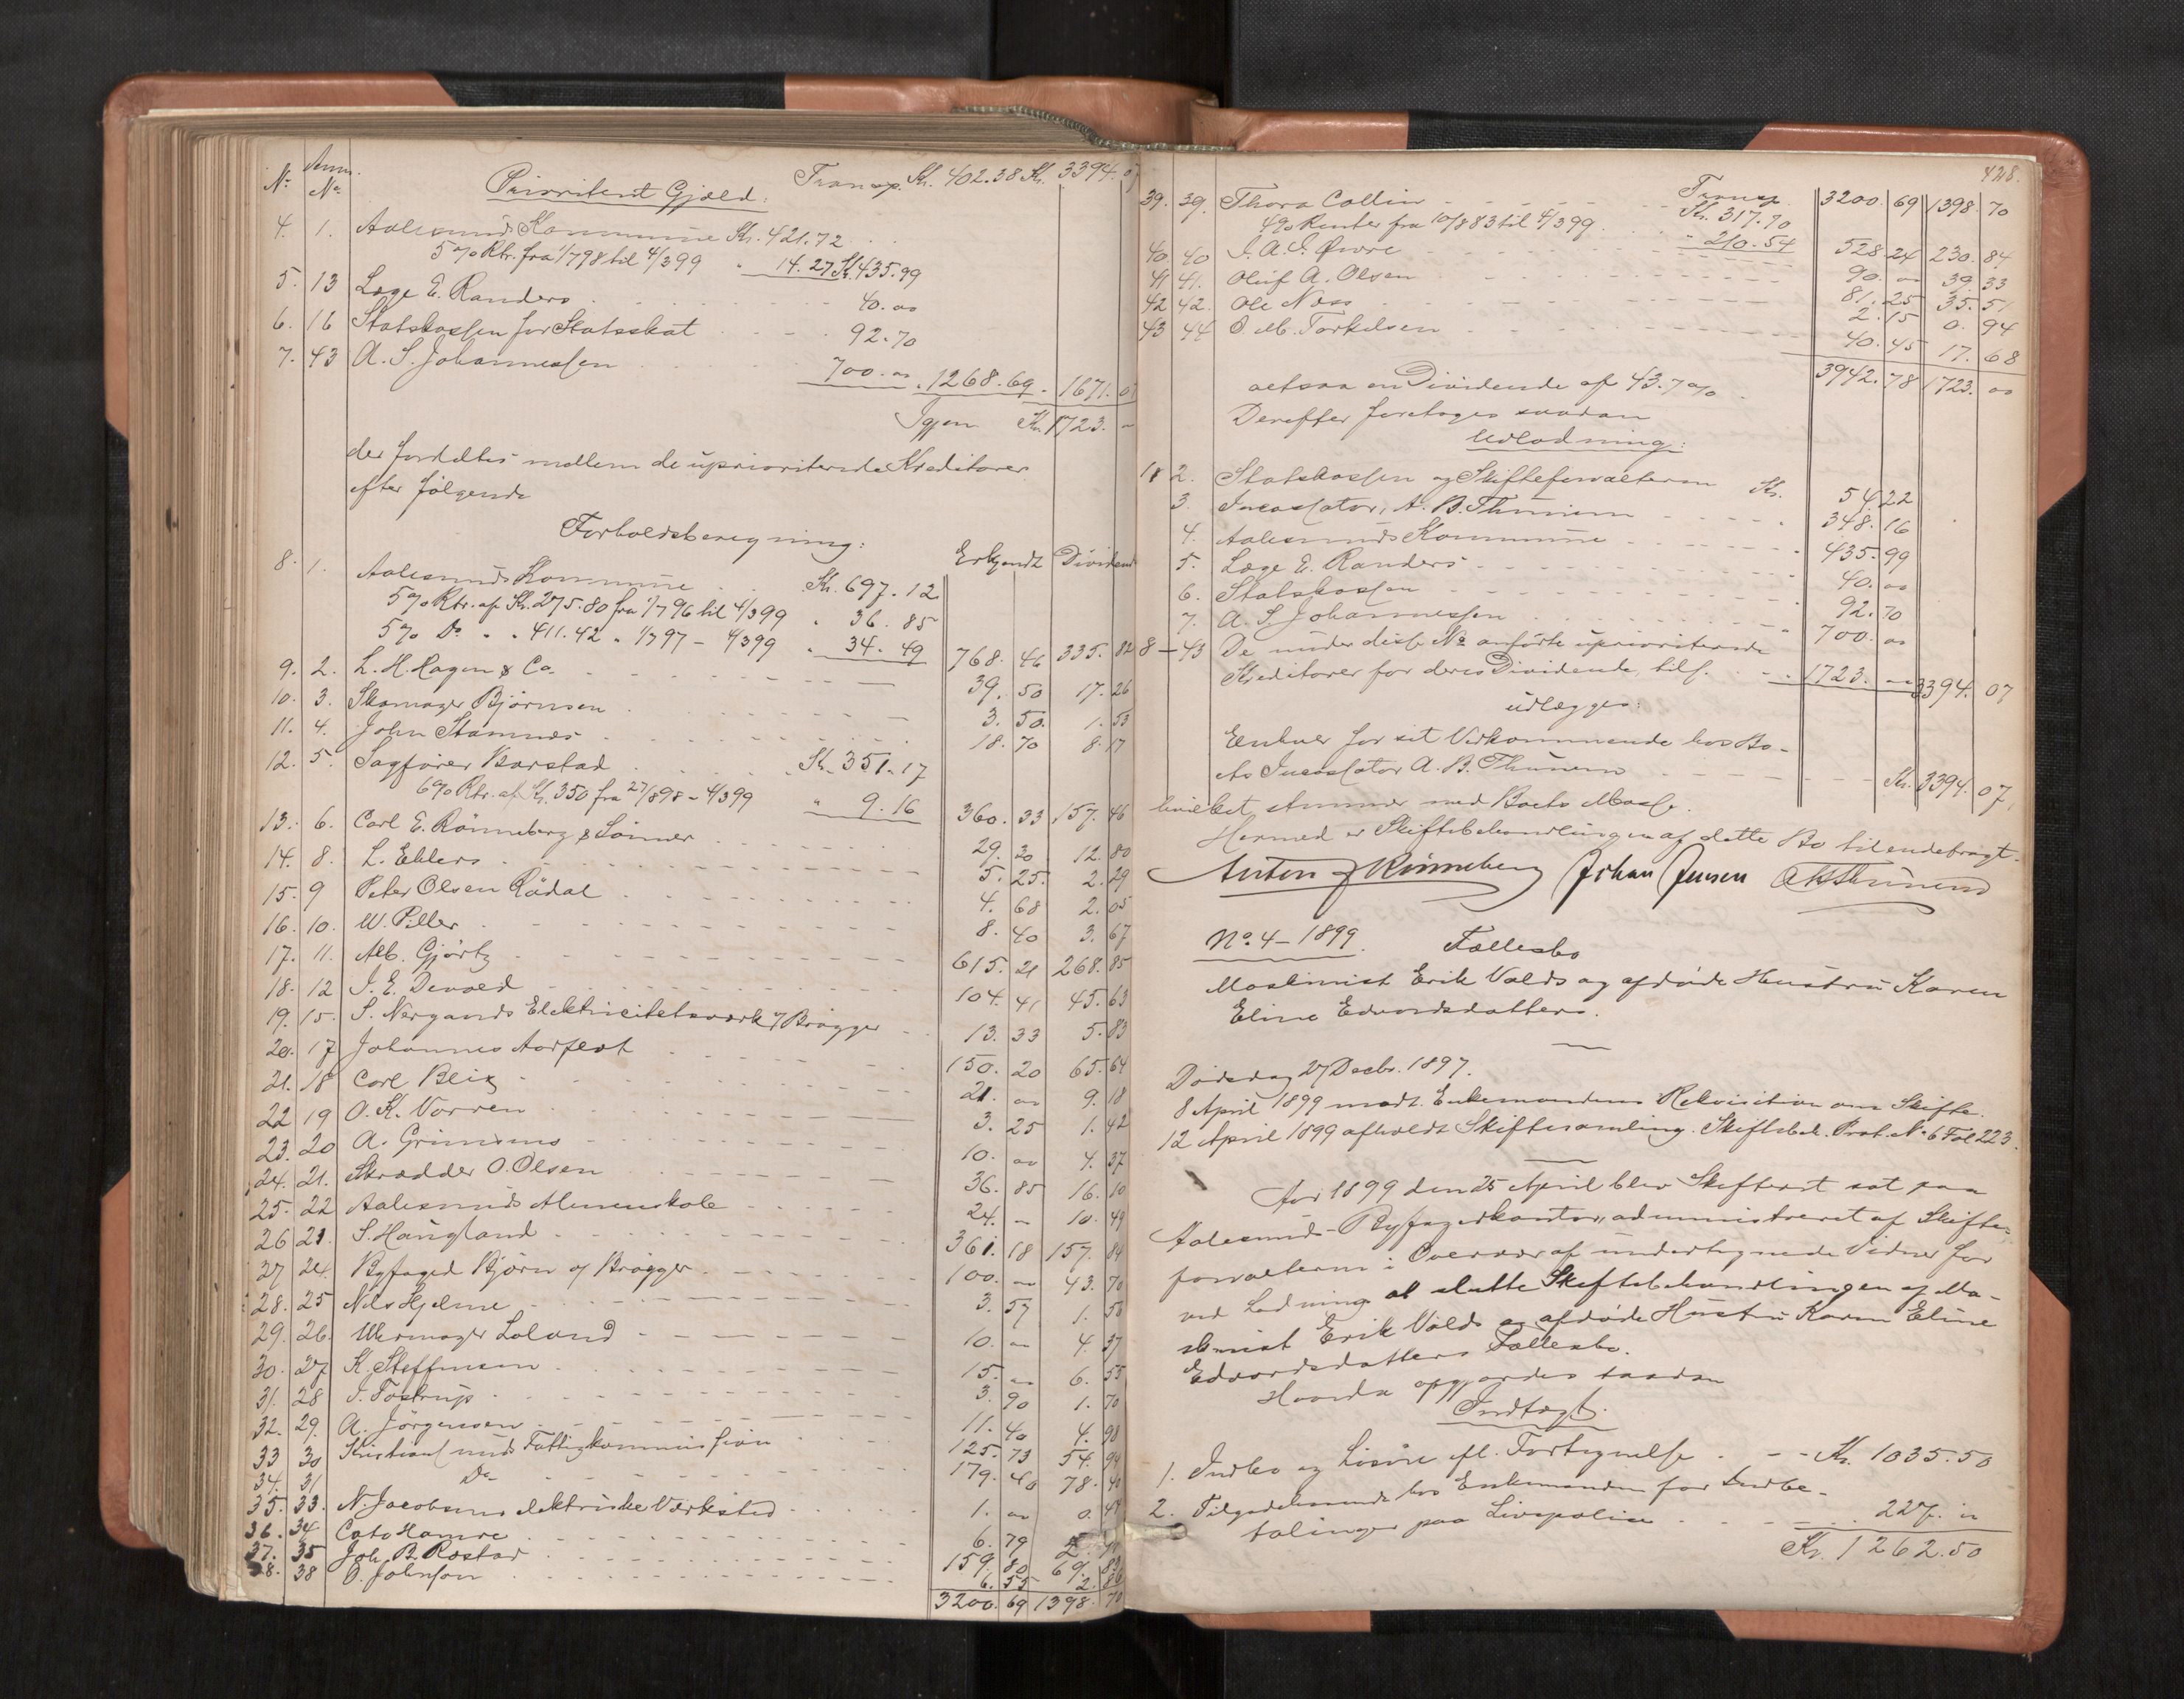 No. Anm. No.
Prioriteret Gjæld: Transp. Kr. 402.38 Kr. 3394.07
4. 1. Aalesunds Kommune Kr. 421.72
5% Rtr. fra 1/7 98 til 4/3 99 " 14.27 Kr. 435.99
5. 13 Læge E. Randers 40.00
6. 16 Statskassen for Statsskat 92.70
7. 43 A. S. Johannessen 700.00 1268.69 1671.07
Igjen Kr. 1723.-
der fordeltes mellem de uprioriterede Kreditorer
efter følgende
Forholdsberegning:
Erkjendt Dividende
8. 1. Aalesunds Kommune Kr. 697.12
5% Rtr. af Kr. 275.80 fra 1/7 96 til 4/3 99 " 36.85
5% Do " " 411.42 " 1/7 97 - 4/3 99 " 34.49 768.46 335.82
9. 2. L. H. Hagen & Co. 39.50 17.26
10. 3. Skomager Bjørnsen 3.50 1.53
11. 4. John Stamnes 18.70 8.17
12. 5. Sagfører Barstad Kr. 351.17
6% Rtr. af Kr. 350 fra 27/8 98 - 4/3 99 " 9.16 360.33 157.46
13. 6. Carl E. Rönneberg & Sönner 29.30 12.80
14. 8. L. Ehlers 5.25 2.29
15. 9 Peter Olsen Rödal 4.68 2.05
16. 10. W. Piller 8.40 3.67
17. 11. Alb. Gjørtz 615.21 268.85
18. 12 I. E. Devold 104.41 45.63
19. 15. S. Nergaards Elektricitetsværk v/ Brøgger 13.33 5.83
20. 17 Johannes Aarflot 150.20 65.64
21. 18 Carl Blix 21.00 9.18
22 19 O. K. Vorren 3.25 1.42
23. 20 A. Grimsmo 10.00 4.37
24. 21. Skrædder O. Olsen 36.85 16.10
25. 22 Aalesunds Almenskole 24.- 10.49
26 23 S. Haugland 361.18 157.84
27 24. Byfoged Bjørn og Brøgger 100.00 43.70
28. 25 Nils Hjelme 3.57 1.56
29. 26. Uhrmager Loland 10.00 4.37
30. 27 K. Steffensen 15.00 6.55
31. 28 I. Tostrup 3.90 1.70
32. 29. A. Jörgensen 11.40 4.98
33 30 Kristiansunds Fattigkommission 125.73 54.94
34. 31 Do 179.40 78.40
35. 33. N. Jacobsens elektriske Værksted 1.00 0.44
36. 34 Cato Hamre 6.79
37. 35 Joh. B. Rostad 159.80 69.83
38. 38 O. Johnson 6.55 2.86
3200.69 1398.70
428.
Transp. 3200.69 1398.70
39. 39. Thora Collin Kr. 317.70
4% Renter fra 10/8 83 til 4/3 99 " 210.54 528.24 230.84
40. 40 I. A. I. Øwre 90.00 39.33
41 41. Oluf A. Olsen 81.25 35.51
42 42. Ole Næss 2.15 0.94
43 44 O. M. Torkelsen 40.45 17.68
3942.78 1723.00
altsaa en Dividende af 43.7%
Derefter foretoges saadan
Udlodning:
1 & 2. Statskassen og Skifteforvalteren Kr. 54.22
3. Incassator, A. B. Thunem 348.16
4. Aalesunds Kommune 435.99
5. Læge E. Randers 40.00
6. Statskassen 92.70
7. A. S. Johannessen 700.00
8-43 De under disse No anførte uprioriterede
Kreditorer for deres Dividende, tils. 1723.- 3394.07
udlægges:
Enhver for sit Vedkommende hos Bo-
ets Incassator A. B. Thunem Kr. 3394.07,
hvilket stemmer med Boets Masse.
Hermed er Skiftebehandlingen af dette Bo tilendebragt.
Anton Rønneberg Johan Jensen AB Thunem
No. 4 - 1899. Fællesbo
Maskinist Erik Valds og afdøde Hustru Karen
Eline Edvardsdatters.
Dødsdag 27 Decbr. 1897.
8 April 1899 modt. Enkemandens Rekvisition om Skifte.
12 April 1899 afholdt Skiftesamling. Skiftebeh. Prot. No 6 Fol 223.
Aar 1899 den 25 April blev Skifteret sat paa
Aalesunds Byfogedkontor, administreret af Skifte-
forvalteren i Overvær af undertegnede Vidner for
ved Lodning at slutte Skiftebehandlingen af Ma-
skinist Erik Valds og afdøde Hustru Karen Eline
Edvardsdatters Fællesbo.
Hvorda opgjordes saadan
Indtægt.
1. Indbo og Løsøre efl. Fortegnelse Kr. 1035.50
2. Tilgodehavende hos Enkemanden for Indbe-
talinger paa Livspolice 227.00
Kr. 1262.50